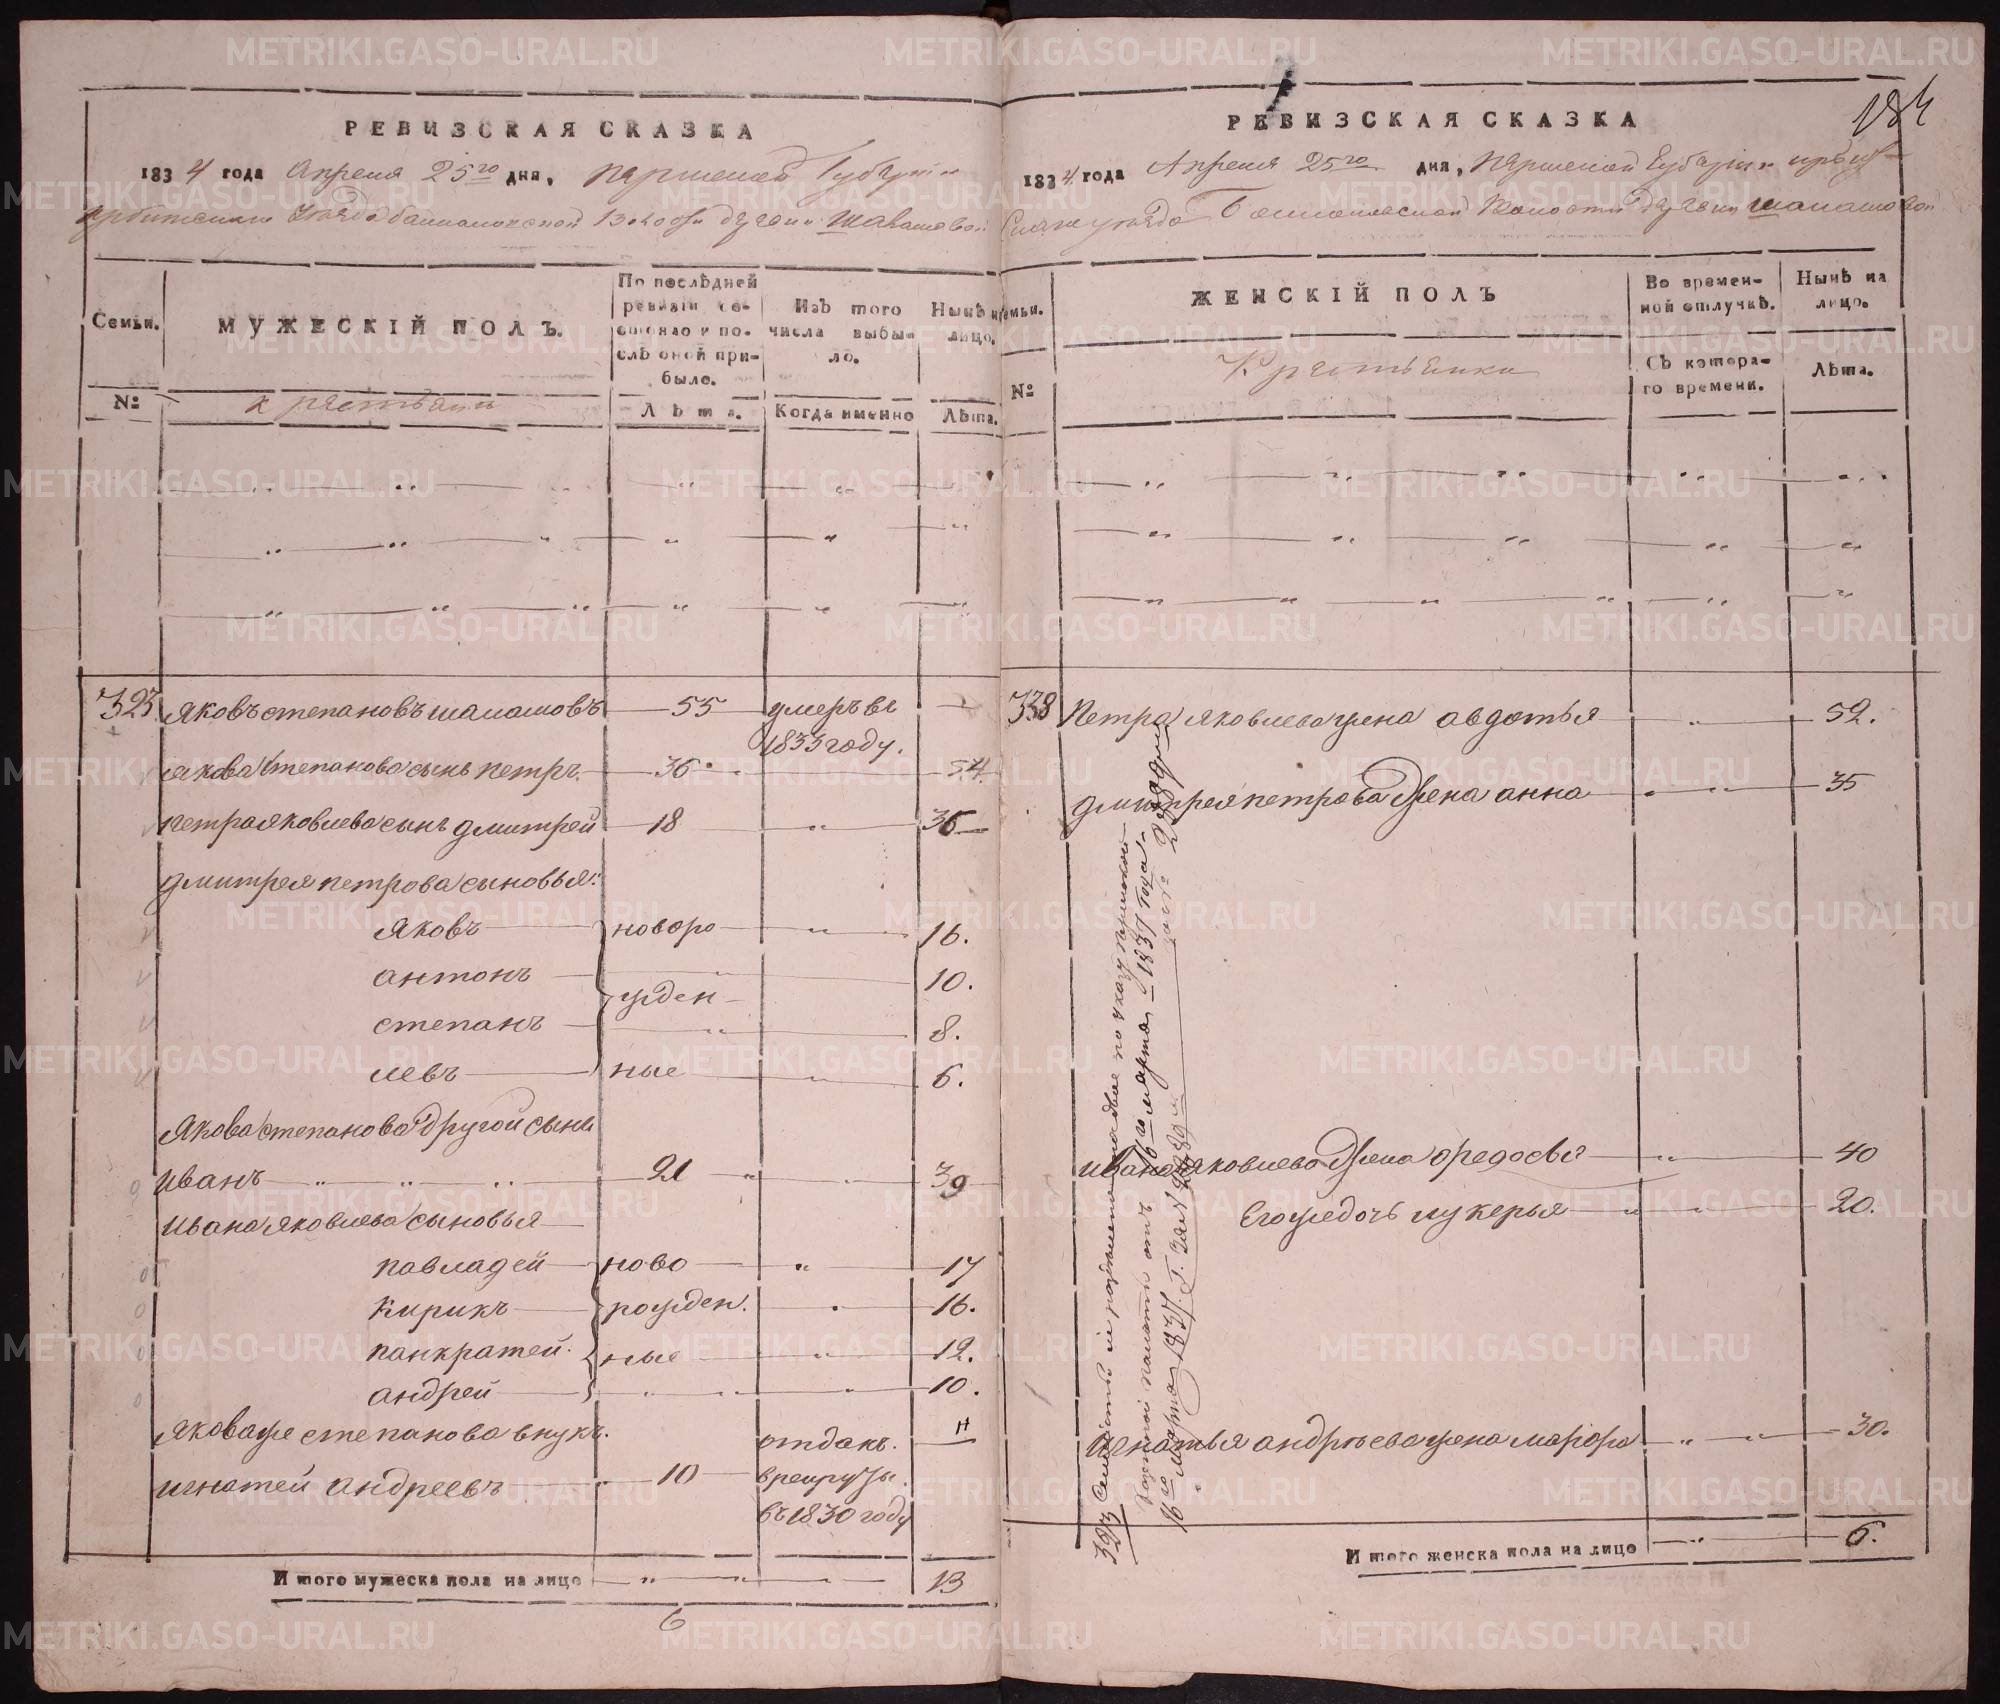 РЕВИЗСКАЯ СКАЗКА
1834 года Апреля 25го дня, Пермской Губернии
Ирбитскаго Уезда Волости
МУЖЕСКІЙ ПОЛЪ.
Семьи.
По послѣдней ревизіи состояло и послѣ оной прибыло.
Изъ того числа выбыло.
Нынѣ на лицо.
№
Крестьяни
Лѣта.
Когда именно
Лѣта.
323. Яковъ степановъ шаламовъ 55 умеръ въ 1833 году.
Якова степанова сынъ петръ. 36 54.
петра яковлева сынъ дмитрей 18 36
дмитрея петрова сыновья:
яковъ новоро 16.
антонъ 10.
степанъ жден 8.
левъ ные 6.
Якова степанова другой сынъ
иванъ 21 39
ивана яковлева сыновья
павладей ново 17
Кирикъ рожден. 16.
панкратей ные 12.
андрей 10.
Якова же степанова внукъ.
игнатей андреевъ 10 отданъ в рекруты въ 1830 году
И того мужеска пола на лицо 13
6
184
РЕВИЗСКАЯ СКАЗКА
1834 года Апреля 25го дня, Пермской Губерніи
уезда Волости
Семьи.
ЖЕНСКІЙ ПОЛЪ
Во временной отлучкѣ.
Нынѣ на лицо.
№
Крестьянки
Съ котораго времени.
Лѣта.
338 Петра яковлева жена авдотья 52.
дмитрея петрова жена анна 35
ивана яковлева жена федосья 40
Его же дочь лукерья 20.
игнатья андреева жена марфа 30.
И того женска пола на лицо 5.
323 по указу пермской
Казенной палаты отъ 16го марта 1837 года
16го марта 1837. г. за №
METRIKI.GASO-URAL.RU